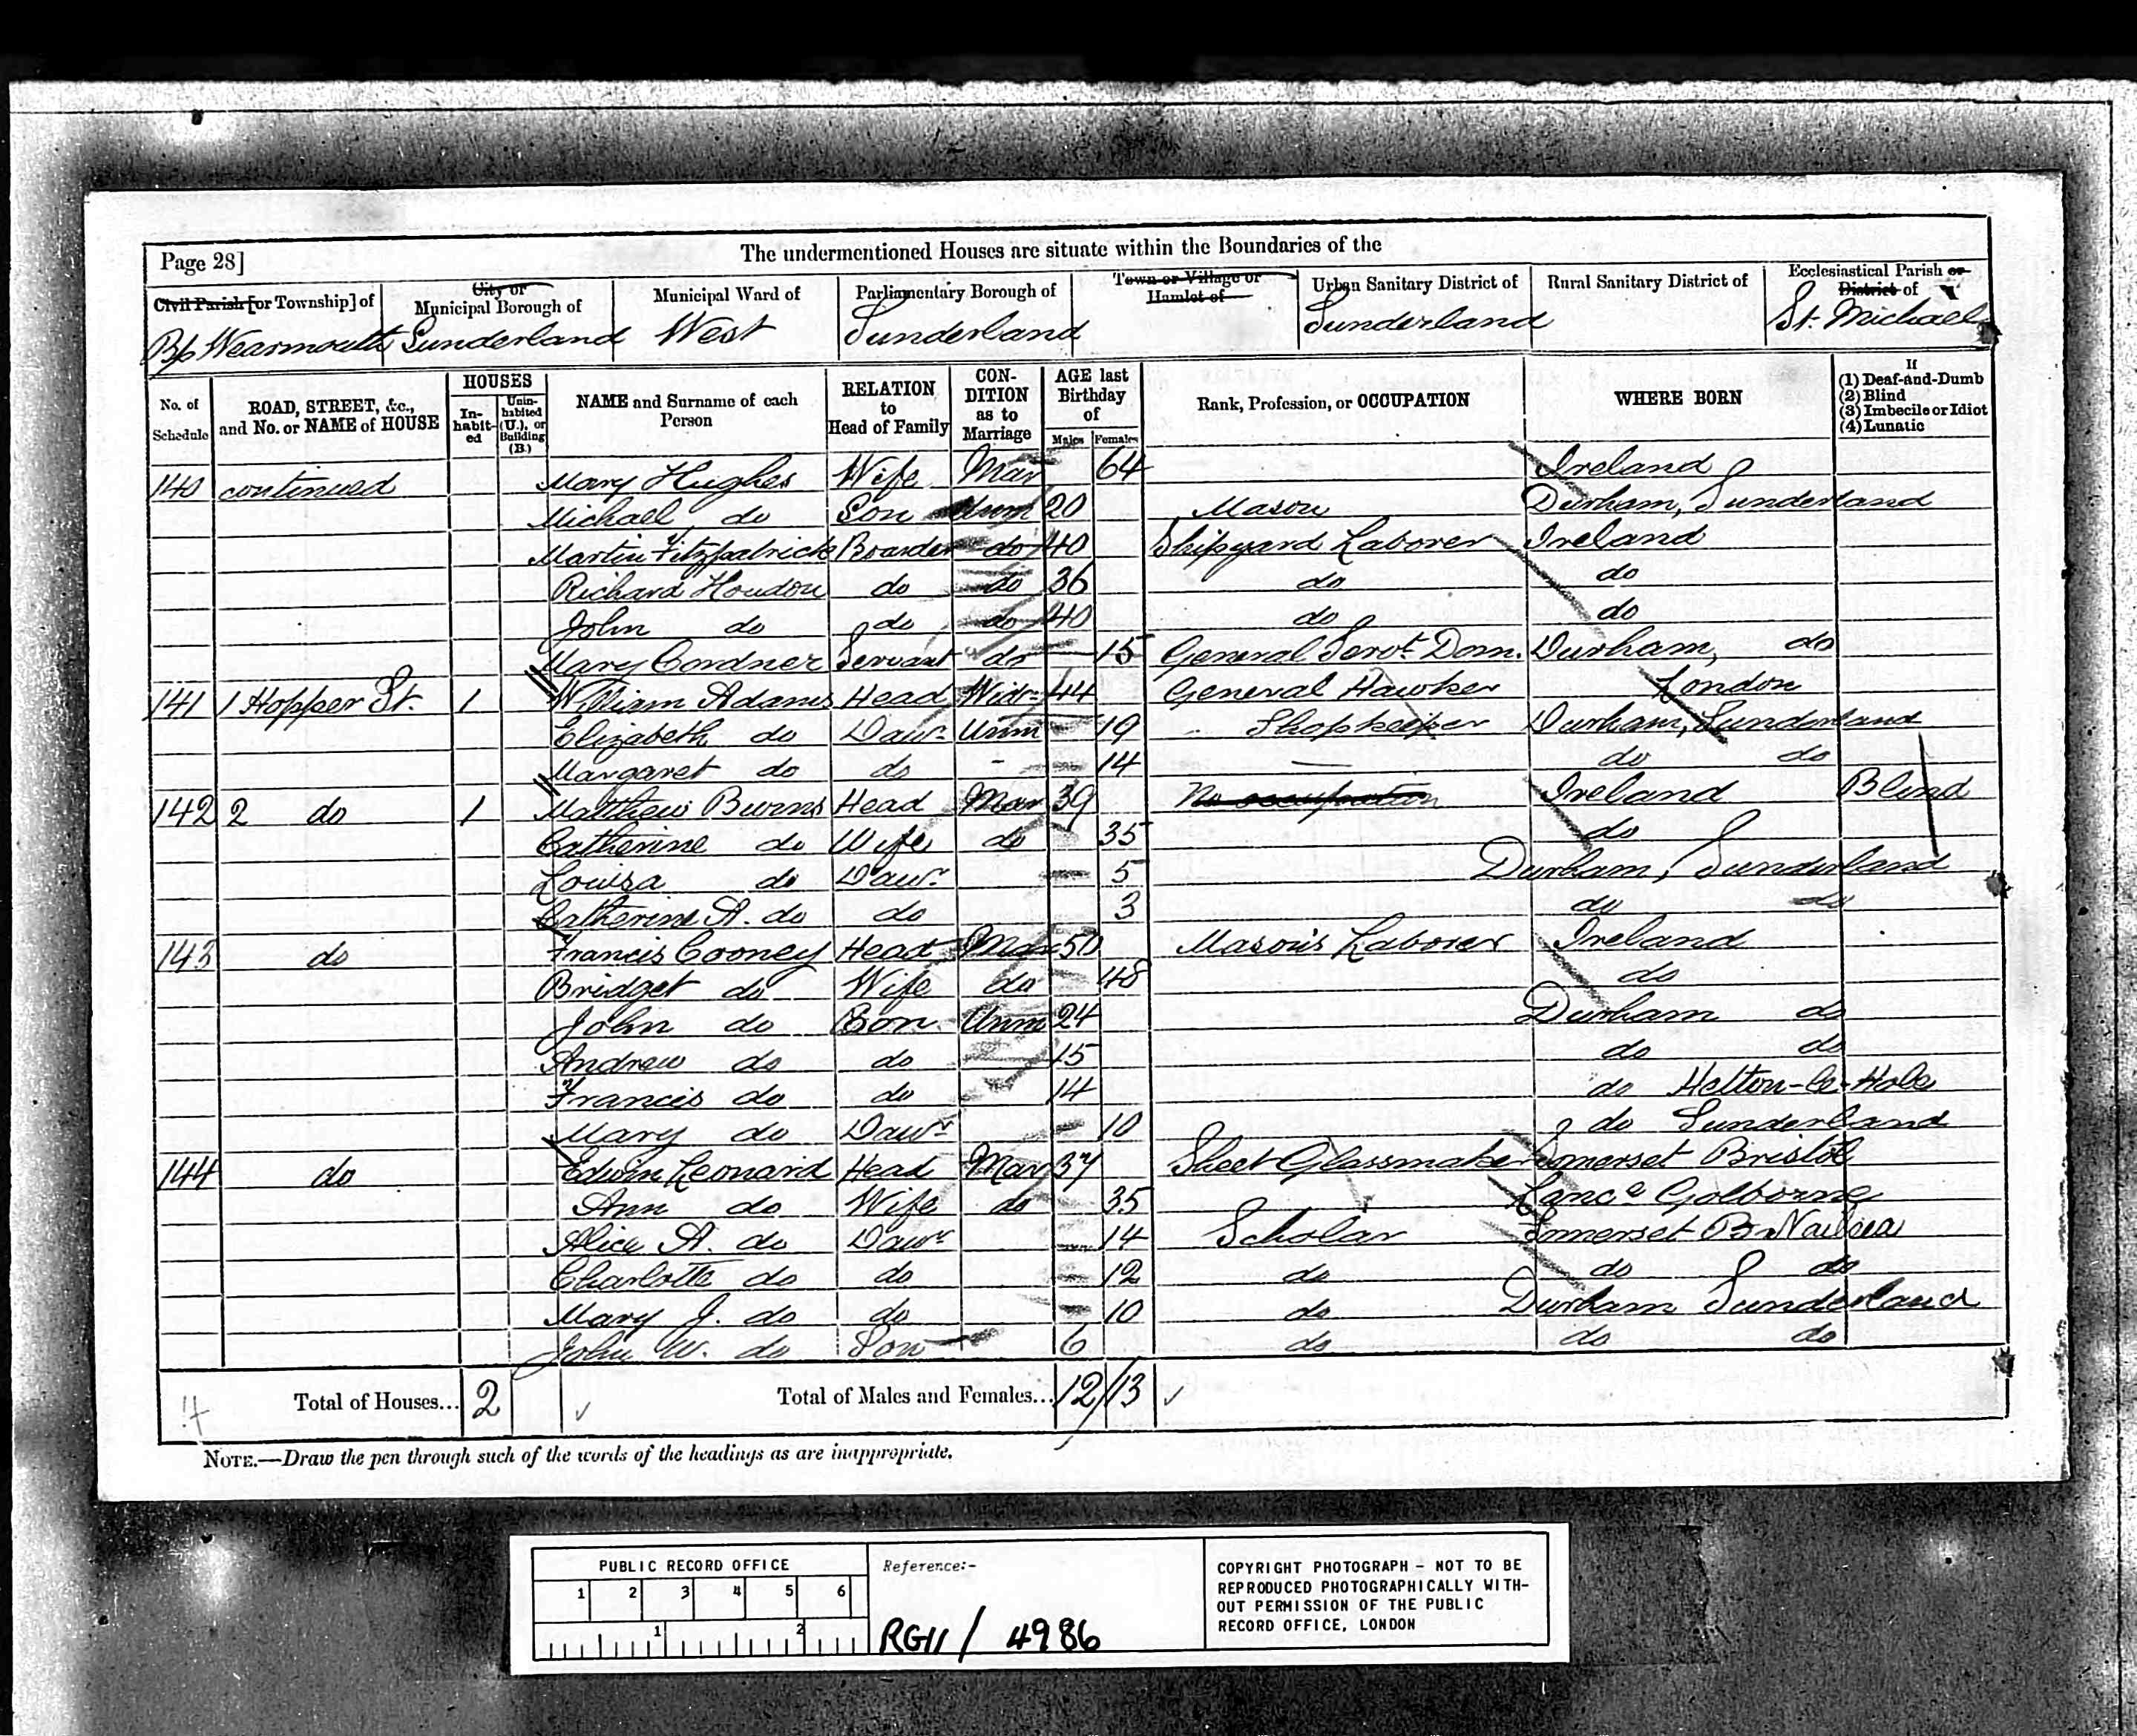 Page 28]
The undermentioned Houses are situate within the Boundaries of the
Civil Parish [or Township] of
City or Municipal Borough of
Municipal Ward of
Parliamentary Borough of
Town or Village or Hamlet of
Urban Sanitary District of
Rural Sanitary District of
Ecclesiastical Parish or District of
Bp Wearmouth Sunderland West Sunderland Sunderland St. Michael
No. of Schedule
ROAD, STREET, &c., and No. or NAME of HOUSE
HOUSES
Inhabited
Uninhabited (U.), or Building (B.)
NAME and Surname of each Person
RELATION to Head of Family
CONDITION as to Marriage
AGE last Birthday of
Males Females
Rank, Profession, or OCCUPATION
WHERE BORN
If
(1) Deaf-and-Dumb
(2) Blind
(3) Imbecile or Idiot
(4) Lunatic
140 continued Mary Hughes Wife Mar 64 Ireland
Michael do Son Unm 20 Mason Durham, Sunderland
Martin Fitzpatrick Boarder do 40 Shipyard Laborer Ireland
Richard Houdon do do 36 do do
John do do do 40 do do
Mary Cordner Servant do 15 General Servt. Dom. Durham, do
141 1 Hopper St. 1 William Adams Head Widr 44 General Hawker London
Elizabeth do Dawr. Unm 19 Shopkeeper Durham, Sunderland
Margaret do do - 14 — do do
142 2 do 1 Matthew Burns Head Mar 39 No occupation Ireland Blind
Catherine do Wife do 35 do
Louisa do Dawr. 5 Durham, Sunderland
Catherine A. do do 3 do do
143 do Francis Cooney Head Mar 50 Mason's Laborer Ireland
Bridget do Wife do 48 do
John do Son Unm 24 Durham do
Andrew do do 15 do do
Francis do do 14 do Hetton-le-Hole
Mary do Dawr 10 do Sunderland
144 do Edwin Leonard Head Mar 37 Sheet Glassmaker Somerset Bristol
Ann do Wife do 35 Lance Golborne
Alice A. do Dawr 14 Scholar Somerset Nailsea
Charlotte do do 12 do do do
Mary J. do do 10 do Durham Sunderland
John W. do Son 6 do do do
4 Total of Houses... 2 Total of Males and Females... 12 13
NOTE.—Draw the pen through such of the words of the headings as are inappropriate.
PUBLIC RECORD OFFICE
1 2 3 4 5 6
1 2
Reference:-
RG11 / 4986
COPYRIGHT PHOTOGRAPH - NOT TO BE
REPRODUCED PHOTOGRAPHICALLY WITH-
OUT PERMISSION OF THE PUBLIC
RECORD OFFICE, LONDON